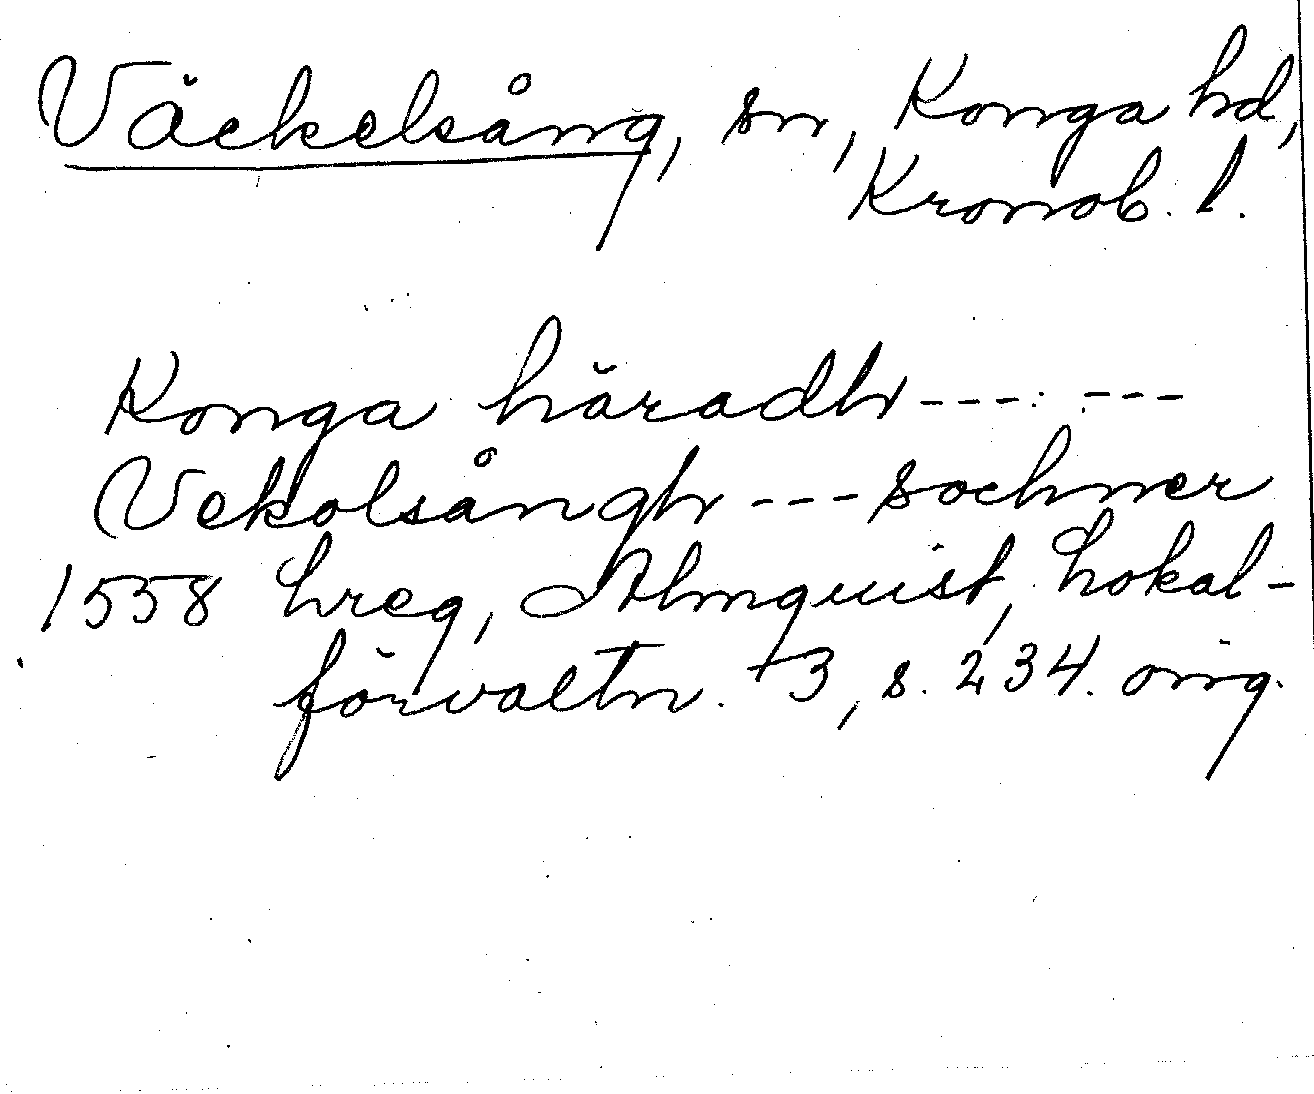 Väckelsång, sn, Konga hd,
Kronob. l.
Konga häradh --- ---
Vekolsångh --- sochner
1558 hreg, Almquist, Lokal-
förvaltn. +3, s. 234. orig.